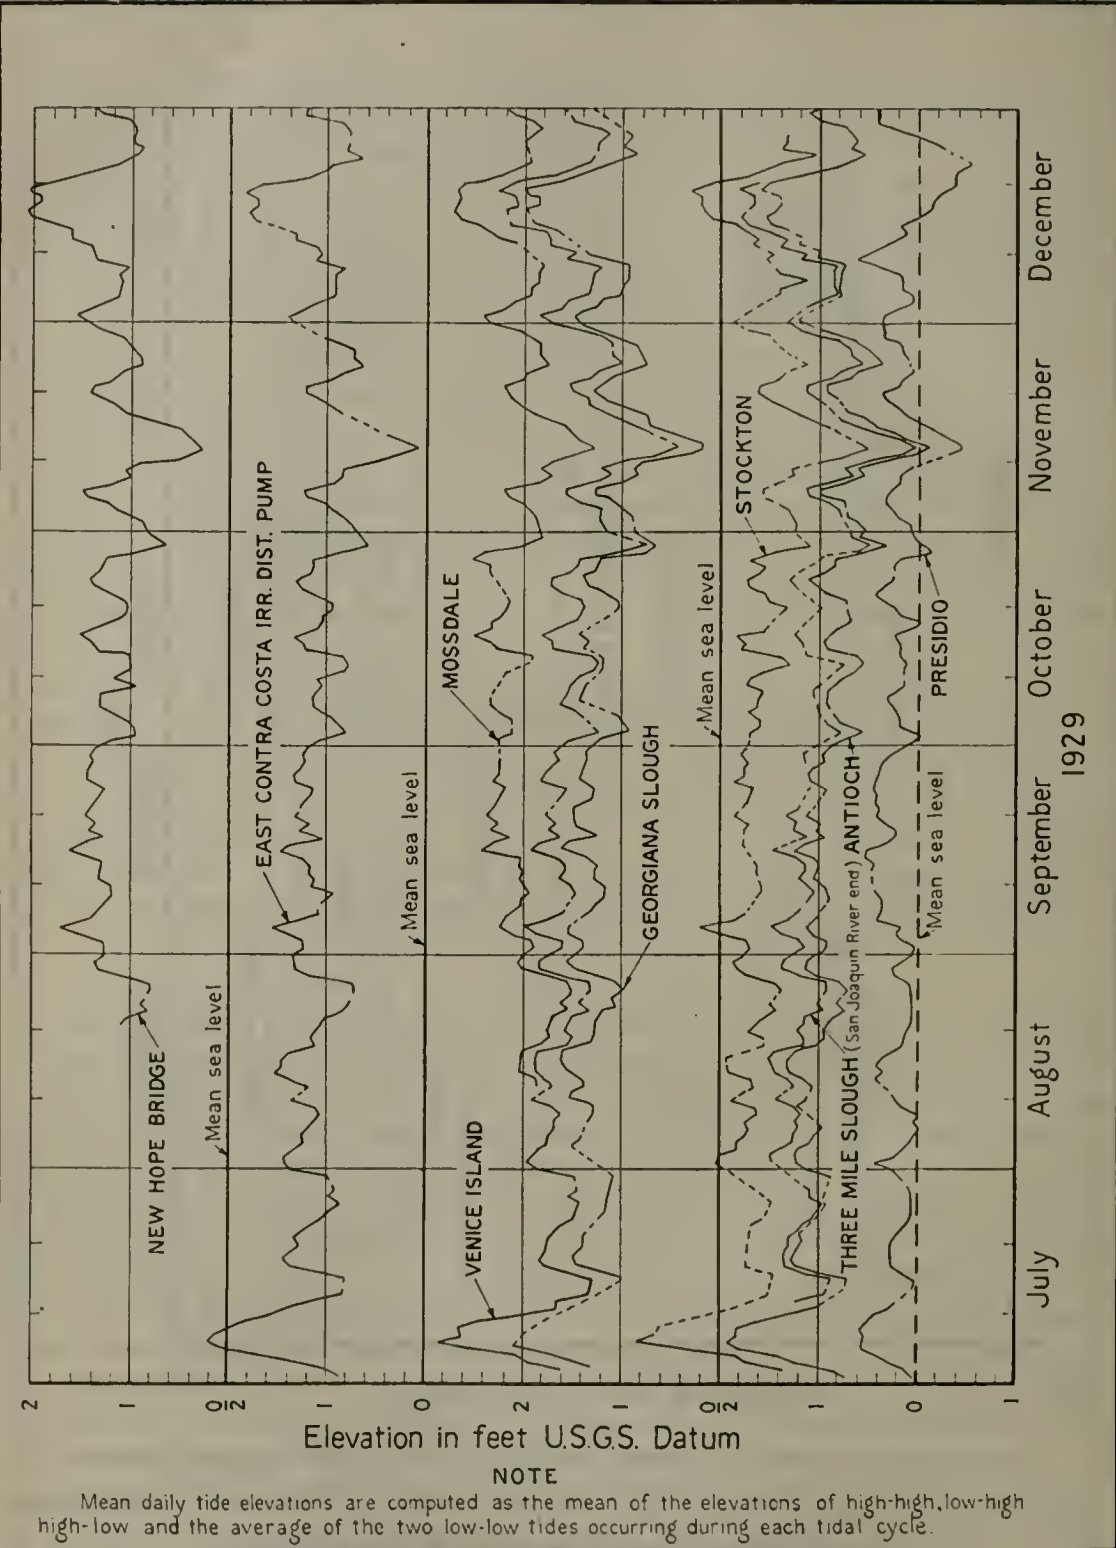 NEW HOPE BRIDGE
Mean sea level
EAST CONTRA COSTA IRR. DIST. PUMP
Mean sea level
MOSSDALE
VENICE ISLAND
GEORGIANA SLOUGH
Mean sea level
STOCKTON
THREE MILE SLOUGH (San Joaquin River end) ANTIOCH
PRESIDIO
Mean sea level
2
1
0
2
1
0
2
1
0
2
1
0
1
July
August
September
October
November
December
1929
Elevation in feet U.S.G.S. Datum
NOTE
Mean daily tide elevations are computed as the mean of the elevations of high-high, low-high
high-low and the average of the two low-low tides occurring during each tidal cycle.